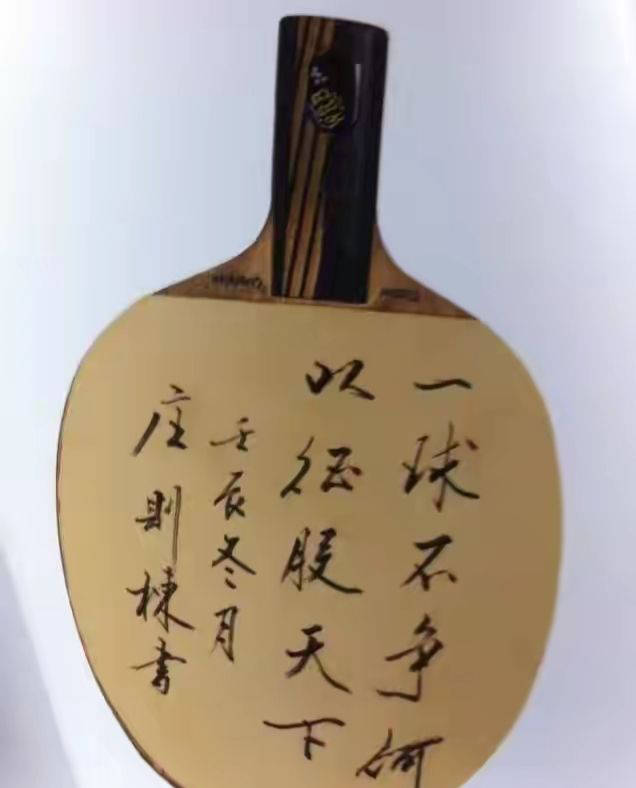 一球不争何
以征服天下
壬辰冬月
庄则栋書